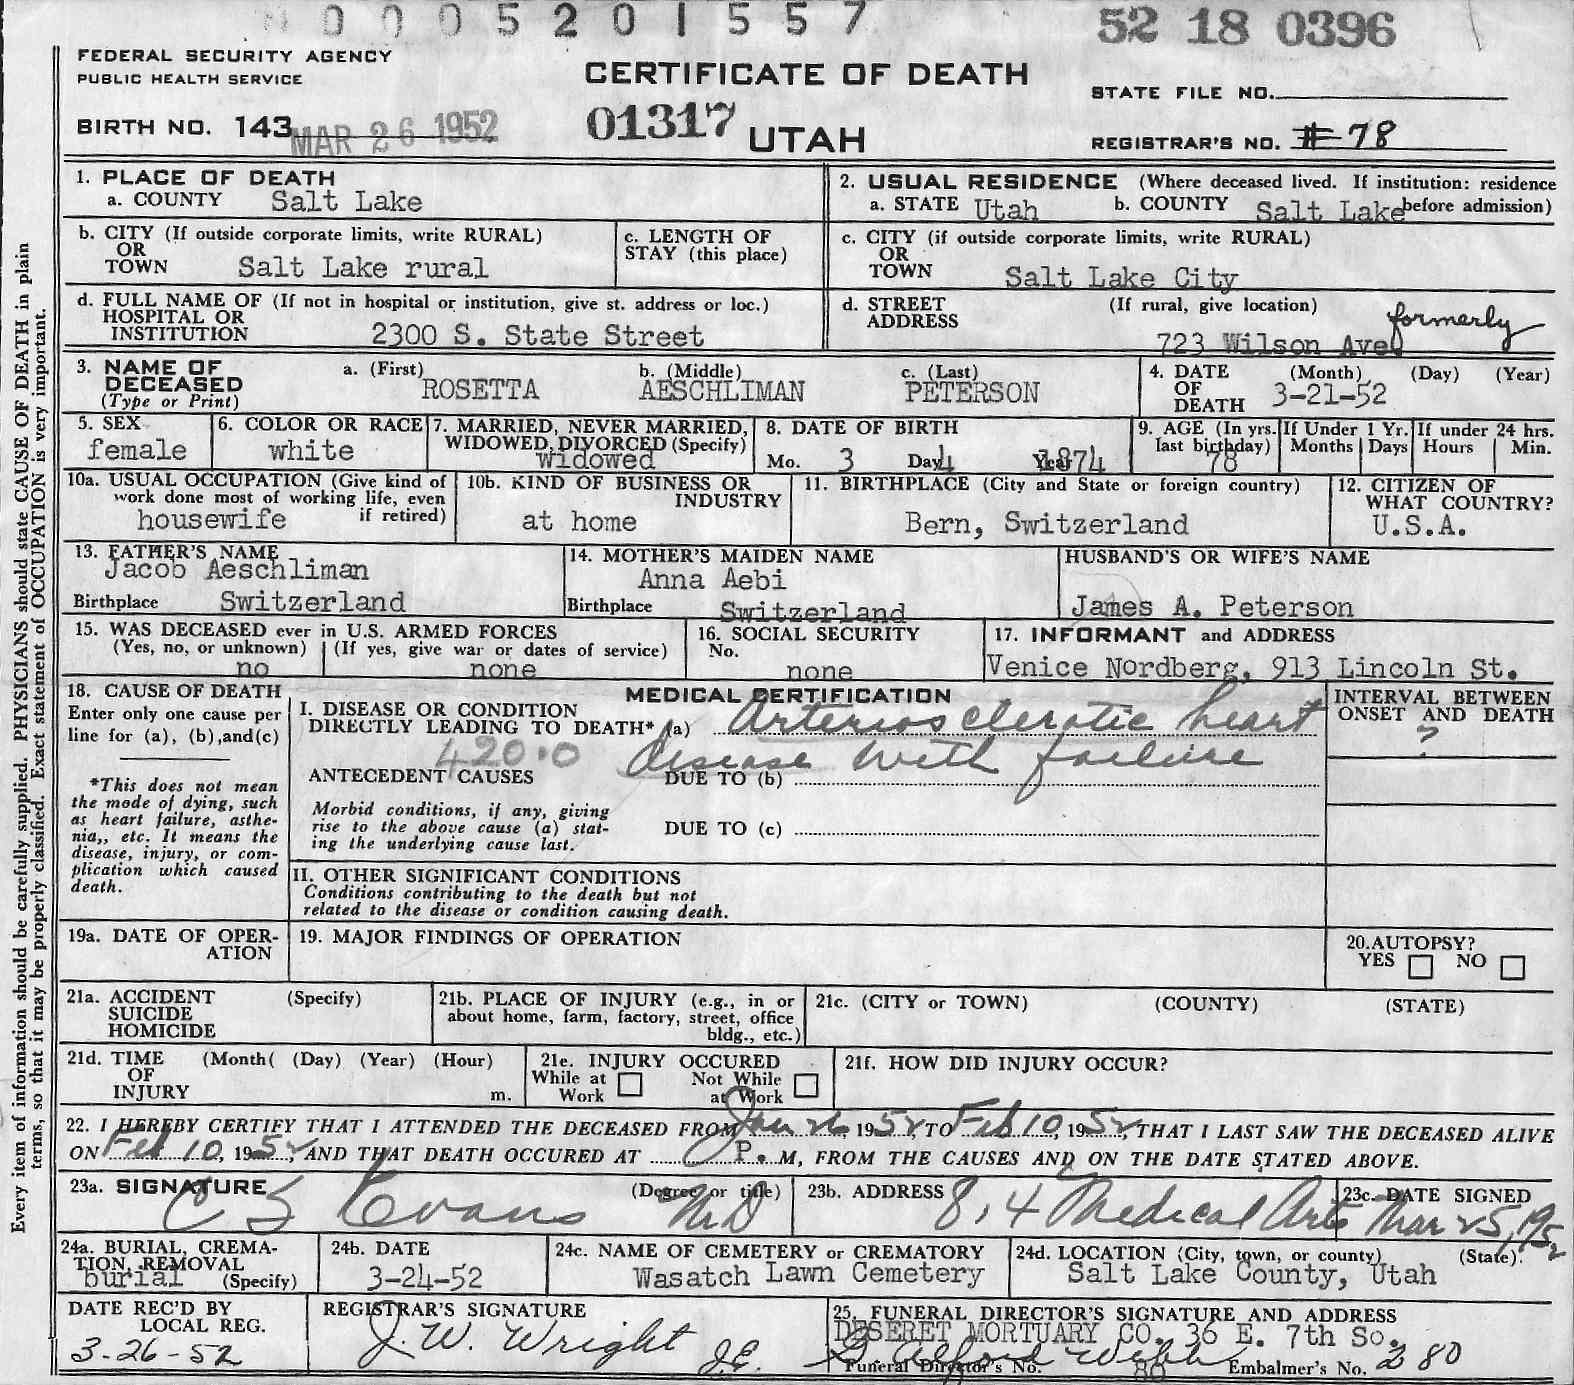 0 0 0 5 2 0 1 5 5 7
52 18 0396
FEDERAL SECURITY AGENCY
PUBLIC HEALTH SERVICE
CERTIFICATE OF DEATH
STATE FILE NO.
BIRTH NO. 143
MAR 26 1952
01317 UTAH
REGISTRAR'S NO. #78
Every item of information should be carefully supplied. PHYSICIANS should state CAUSE OF DEATH in plain
terms, so that it may be properly classified. Exact statement of OCCUPATION is very important.
1. PLACE OF DEATH
a. COUNTY Salt Lake
2. USUAL RESIDENCE (Where deceased lived. If institution: residence
before admission)
a. STATE Utah b. COUNTY Salt Lake
b. CITY (If outside corporate limits, write RURAL)
OR
TOWN Salt Lake rural
c. LENGTH OF
STAY (this place)
c. CITY (if outside corporate limits, write RURAL)
OR
TOWN Salt Lake City
d. FULL NAME OF (If not in hospital or institution, give st. address or loc.)
HOSPITAL OR
INSTITUTION 2300 S. State Street
d. STREET (If rural, give location)
ADDRESS
723 Wilson Ave. formerly
3. NAME OF
DECEASED
(Type or Print)
a. (First) b. (Middle) c. (Last)
ROSETTA AESCHLIMAN PETERSON
4. DATE (Month) (Day) (Year)
OF
DEATH 3-21-52
5. SEX
female
6. COLOR OR RACE
white
7. MARRIED, NEVER MARRIED,
WIDOWED, DIVORCED (Specify)
widowed
8. DATE OF BIRTH
Mo. 3 Day 4 Year 1874
9. AGE (In yrs.
last birthday)
78
If Under 1 Yr.
Months Days
If under 24 hrs.
Hours Min.
10a. USUAL OCCUPATION (Give kind of
work done most of working life, even
if retired)
housewife
10b. KIND OF BUSINESS OR
INDUSTRY
at home
11. BIRTHPLACE (City and State or foreign country)
Bern, Switzerland
12. CITIZEN OF
WHAT COUNTRY?
U.S.A.
13. FATHER'S NAME
Jacob Aeschliman
Birthplace Switzerland
14. MOTHER'S MAIDEN NAME
Anna Aebi
Birthplace Switzerland
HUSBAND'S OR WIFE'S NAME
James A. Peterson
15. WAS DECEASED ever in U.S. ARMED FORCES
(Yes, no, or unknown) (If yes, give war or dates of service)
no none
16. SOCIAL SECURITY
No.
none
17. INFORMANT and ADDRESS
Venice Nordberg, 913 Lincoln St.
18. CAUSE OF DEATH
Enter only one cause per
line for (a), (b), and (c)
*This does not mean
the mode of dying, such
as heart failure, asthe-
nia,, etc. It means the
disease, injury, or com-
plication which caused
death.
MEDICAL CERTIFICATION
I. DISEASE OR CONDITION
DIRECTLY LEADING TO DEATH* (a) Arteriosclerotic heart
420.0 disease with failure
ANTECEDENT CAUSES DUE TO (b)
Morbid conditions, if any, giving
rise to the above cause (a) stat-
ing the underlying cause last.
DUE TO (c)
II. OTHER SIGNIFICANT CONDITIONS
Conditions contributing to the death but not
related to the disease or condition causing death.
INTERVAL BETWEEN
ONSET AND DEATH
?
19a. DATE OF OPER-
ATION
19. MAJOR FINDINGS OF OPERATION
20. AUTOPSY?
YES NO
21a. ACCIDENT (Specify)
SUICIDE
HOMICIDE
21b. PLACE OF INJURY (e.g., in or
about home, farm, factory, street, office
bldg., etc.)
21c. (CITY or TOWN) (COUNTY) (STATE)
21d. TIME (Month( (Day) (Year) (Hour)
OF
INJURY m.
21e. INJURY OCCURED
While at Not While
Work at Work
21f. HOW DID INJURY OCCUR?
22. I HEREBY CERTIFY THAT I ATTENDED THE DECEASED FROM Jan 26, 1952, TO Feb 10, 1952, THAT I LAST SAW THE DECEASED ALIVE
ON Feb 10, 1952, AND THAT DEATH OCCURED AT P. M, FROM THE CAUSES AND ON THE DATE STATED ABOVE.
23a. SIGNATURE (Degree or title)
C S Evans M.D
23b. ADDRESS 814 Medical Arts
23c. DATE SIGNED
Mar 25, 1952
24a. BURIAL, CREMA-
TION, REMOVAL
burial (Specify)
24b. DATE
3-24-52
24c. NAME OF CEMETERY or CREMATORY
Wasatch Lawn Cemetery
24d. LOCATION (City, town, or county) (State).
Salt Lake County, Utah
DATE REC'D BY
LOCAL REG.
3-26-52
REGISTRAR'S SIGNATURE
J. W. Wright
J.E.
25. FUNERAL DIRECTOR'S SIGNATURE AND ADDRESS
DESERET MORTUARY CO. 36 E. 7th So.
Alford Webb
Funeral Director's No. 80 Embalmer's No. 280